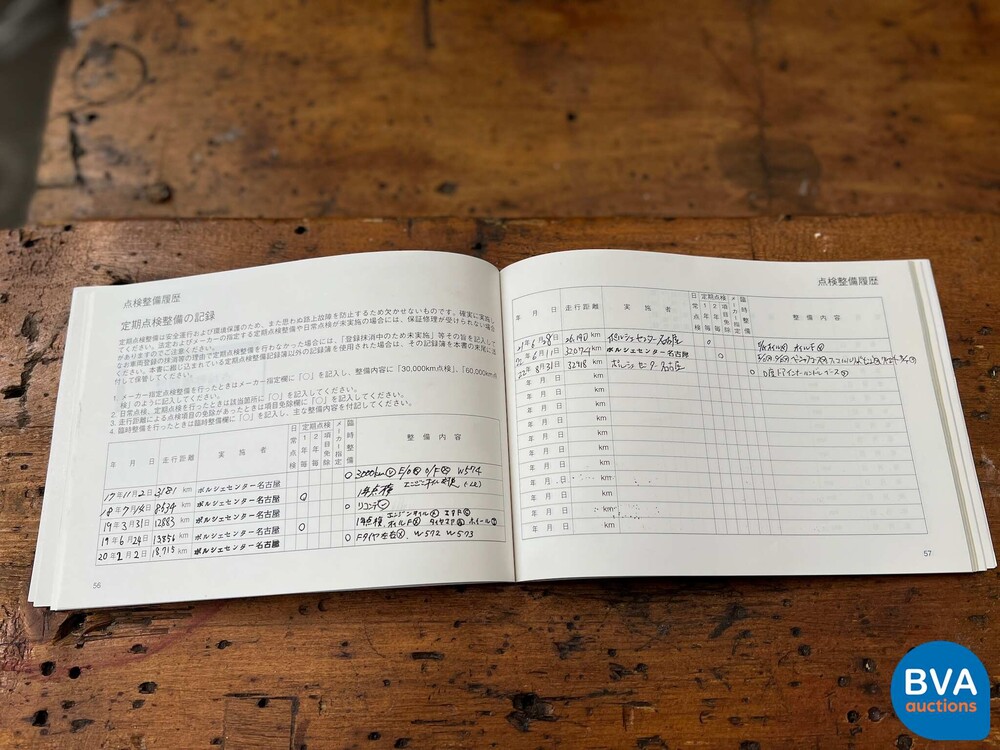 点検整備履歴
定期点検整備の記録
定期点検整備は安全運行および環境保護のため、また思わぬ路上故障を防止するため欠かせないものです。確実に実施し
てください。法定およびメーカーの指定する定期点検整備や日常点検が未実施の場合には、保証修理が受けられない場合
がありますのでご注意ください。
なお車両登録の抹消等の理由で定期点検整備を行わなかった場合には、「登録抹消中のため未実施」等その旨を記入して
ください。本書に綴じ込まれている定期点検整備記録簿以外の記録簿を使用された場合は、その記録簿を本書の末尾に添
付して保管してください。
1. メーカー指定点検整備を行ったときはメーカー指定欄に「○」を記入し、整備内容に「30,000km点検」、「60,000km点
検」のように記入してください。
2. 日常点検、定期点検を行ったときは該当箇所に「○」を記入してください。
3. 走行距離による点検項目の免除があったときは項目免除欄に「○」を記入してください。
4. 臨時整備を行ったときは臨時整備欄に「○」を記入し、主な整備内容を付記してください。
年 月 日 走行距離 実施者 日常点検 定期点検 1年毎 2年毎 項目免除 メーカー指定 臨時整備 整備内容
17年11月2日 3181 km ポルシェセンター名古屋 ○ 3000km E/O O/F W574
18年7月14日 8534 km ポルシェセンター名古屋 ○ 1年点検
19年3月31日 12883 km ポルシェセンター名古屋 ○ リコンデ
19年6月24日 13856 km ポルシェセンター名古屋 ○ 1年点検
20年2月2日 18,715 km ポルシェセンター名古屋 ○ Fタイヤ左右 W572 W573
56
点検整備履歴
年 月 日 走行距離 実施者 日常点検 定期点検 1年毎 2年毎 項目免除 メーカー指定 臨時整備 整備内容
km ポルシェセンター名古屋 ○
22年6月11日 32074 km ポルシェセンター名古屋 ○
22年8月31日 32418 km ポルシェセンター名古屋 ○
年 月 日 km
年 月 日 km
年 月 日 km
年 月 日 km
年 月 日 km
年 月 日 km
年 月 日 km
年 月 日 km
年 月 日 km
年 月 日 km
57
BVA
auctions